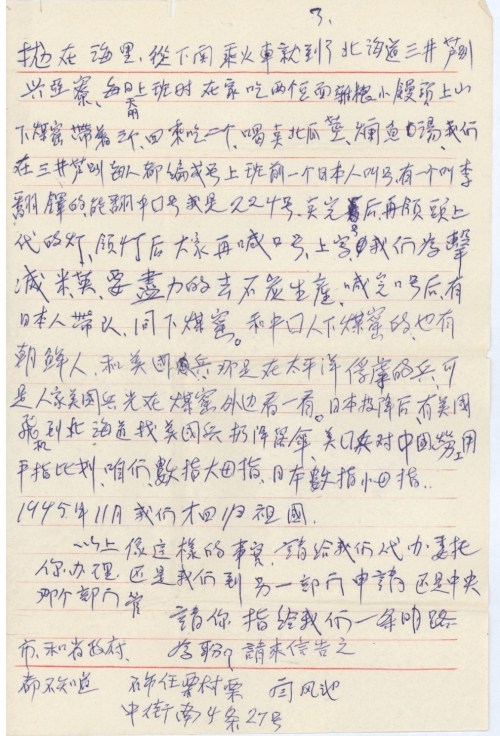 3.
在海里，從下関乘火車就到了北海道三井芦別
兴亞寮，每日上班时在家吃两個面雜根小饅頭上山
下煤窑帶着三个，回來吃二个，喝 北瓜 ，爛魚湯，我们
在三井芦别每人都编成号上班前一个日本人叫号，有一个叫李
翻鐸的能翻中口号我是224号，点完号后，再领頭上
代的灯，领灯后大家再喊口号，上寫我们為擊
滅米英，要盡力的去石炭生産，喊完口号后，有
日本人帶队，同下煤窑。和中口人下煤窑的，也有
朝鲜人，和英國兵那是在太平洋俘虜的兵，可
是人家美國兵光在煤窑外边看一看。日本投降后，有美國
飛机到北海道找美國兵扔降落伞，美口兵对中國劳工用
手指比划，咱们數指大田指，日本數指小田指..
1945年11月我们才回归祖國.
以上像這樣的事實，請给我们代办，委托
你办理，还是我们到另一部门申請，还是中央
那个部门管 請你指给我们一条明路
市，和省政府， 為盼， 請來信告之
都不知道 石市任栗村栗 闫风池
中街南4条27号